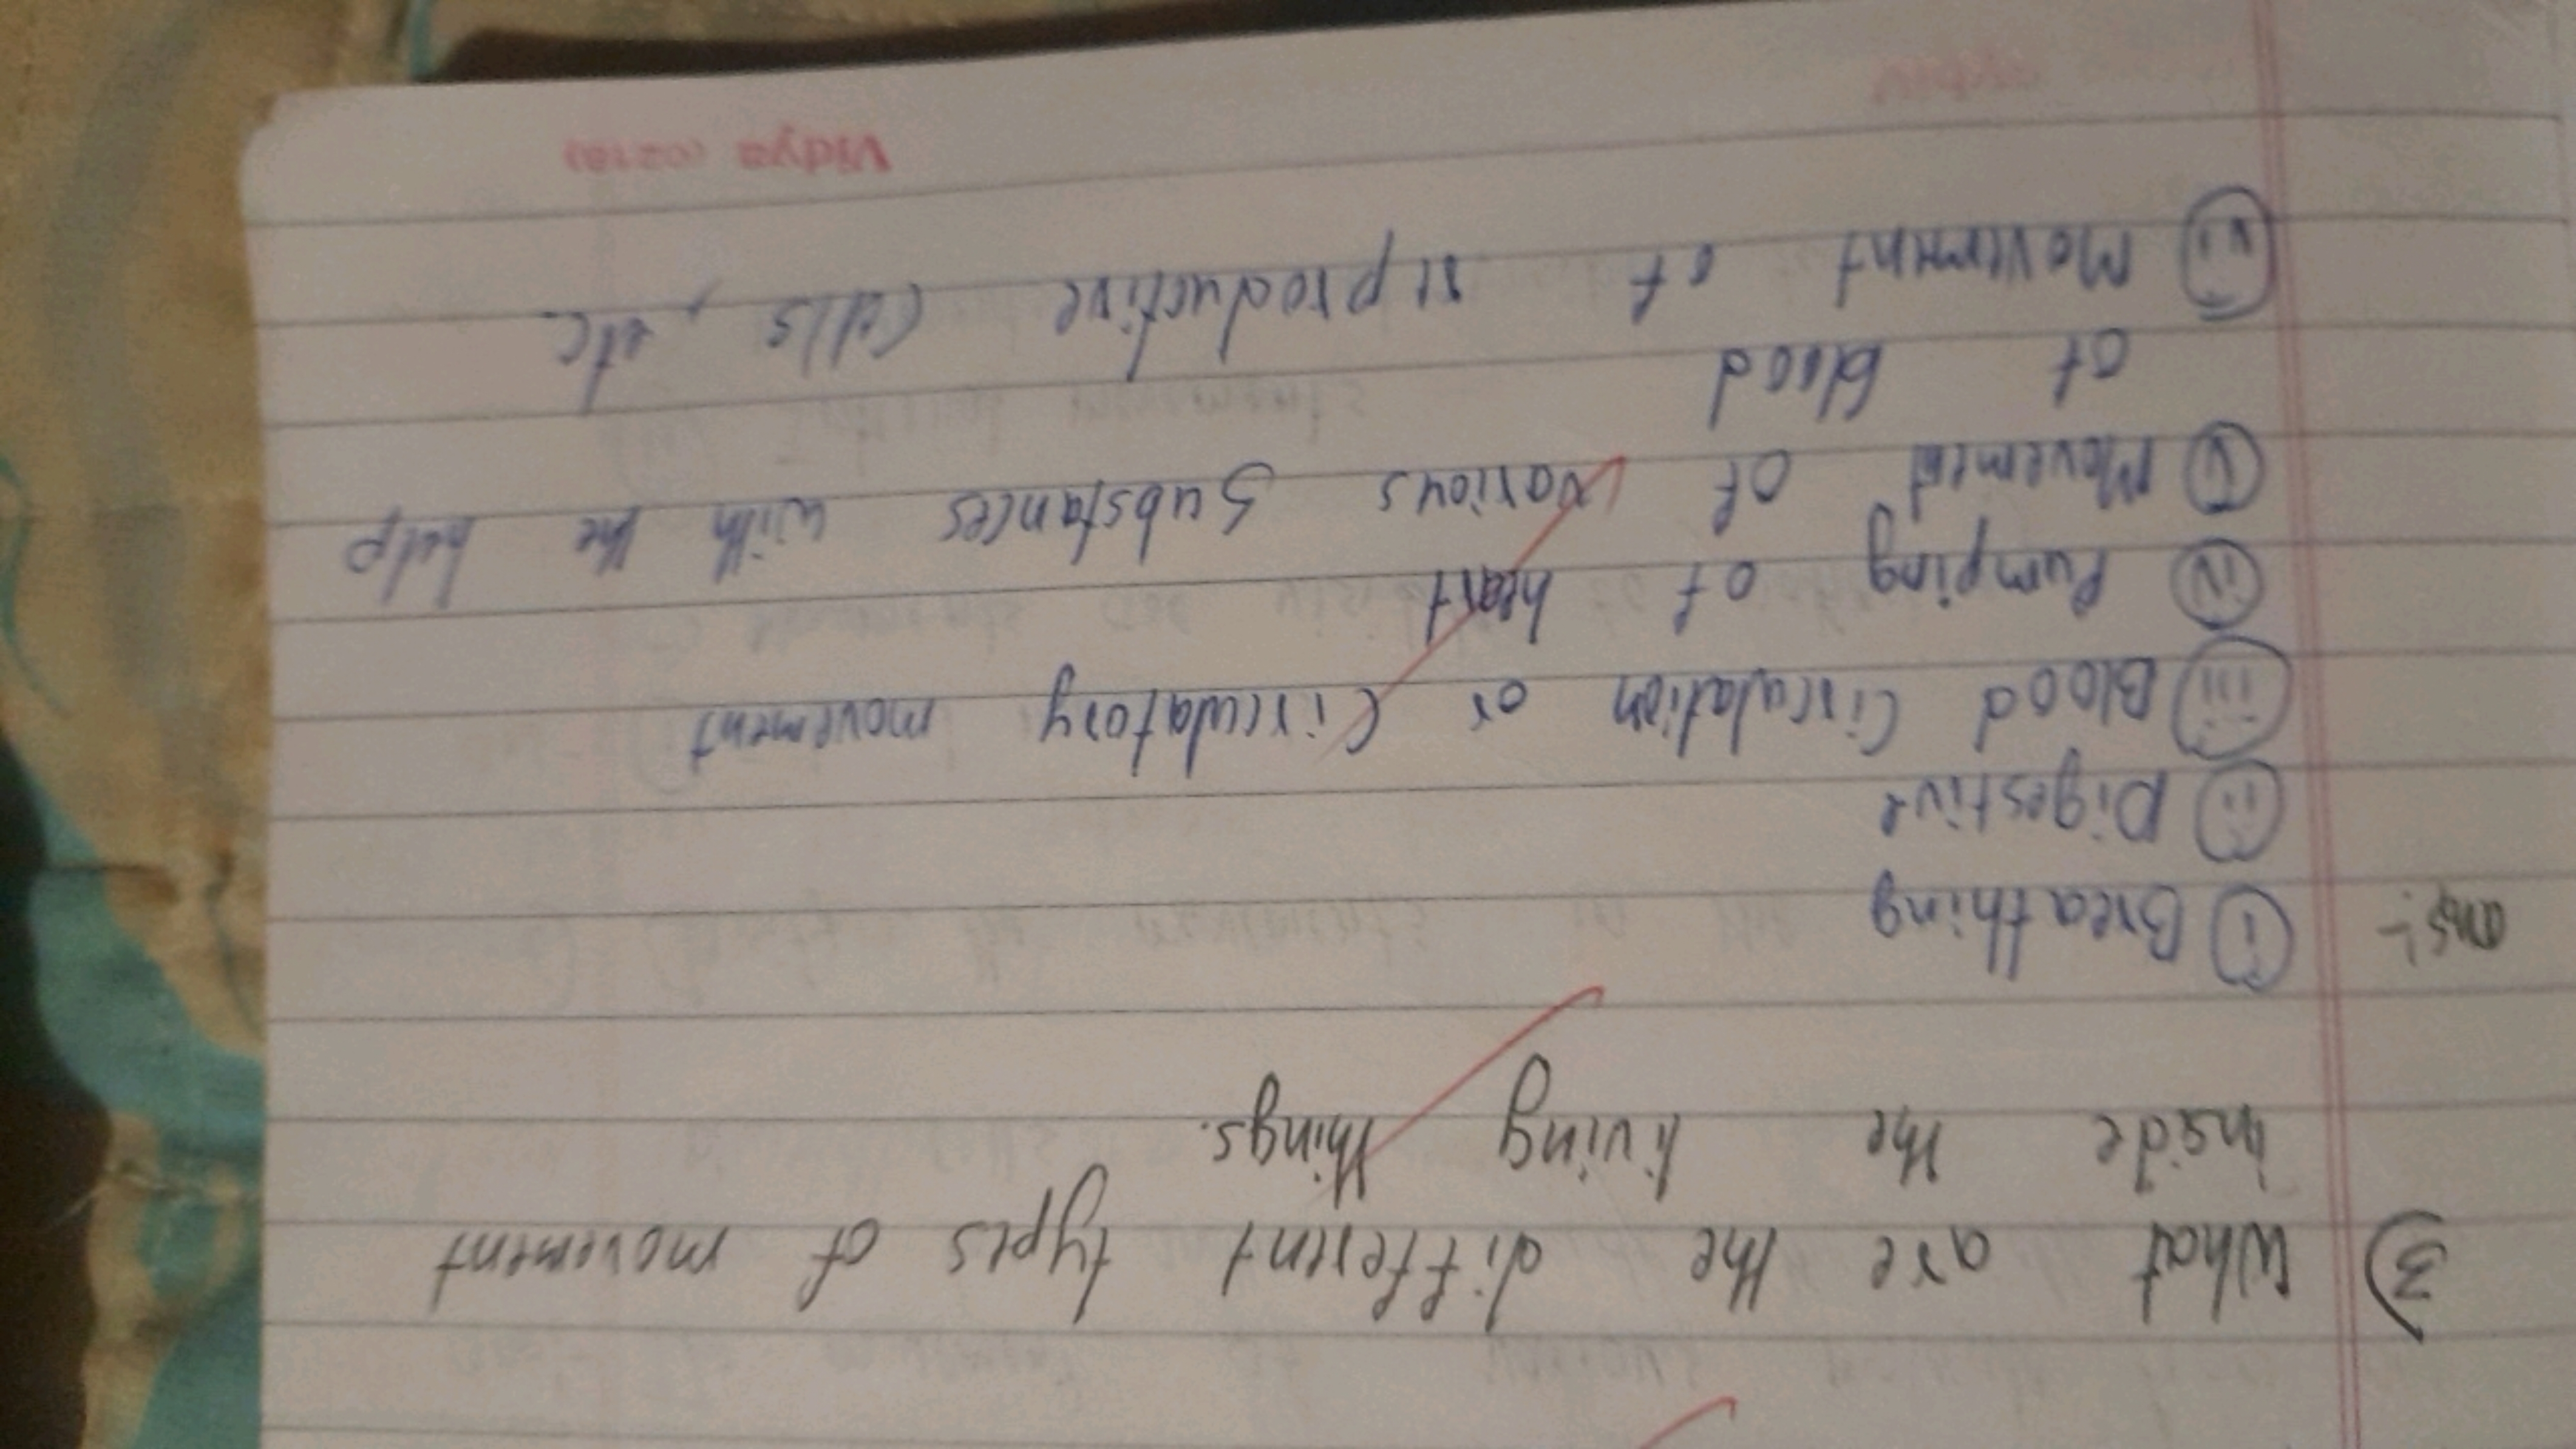 3) What are the different types of movement
inside the living things.
ans:- (i) Breathing
(ii) Digestive
(iii) Blood Circulation or Circulatory movement
(iv) Pumping of heart
(v) Movement of various substances with the help
of blood
(vi) Movement of reproductive cells, etc.
Vidya (0218)